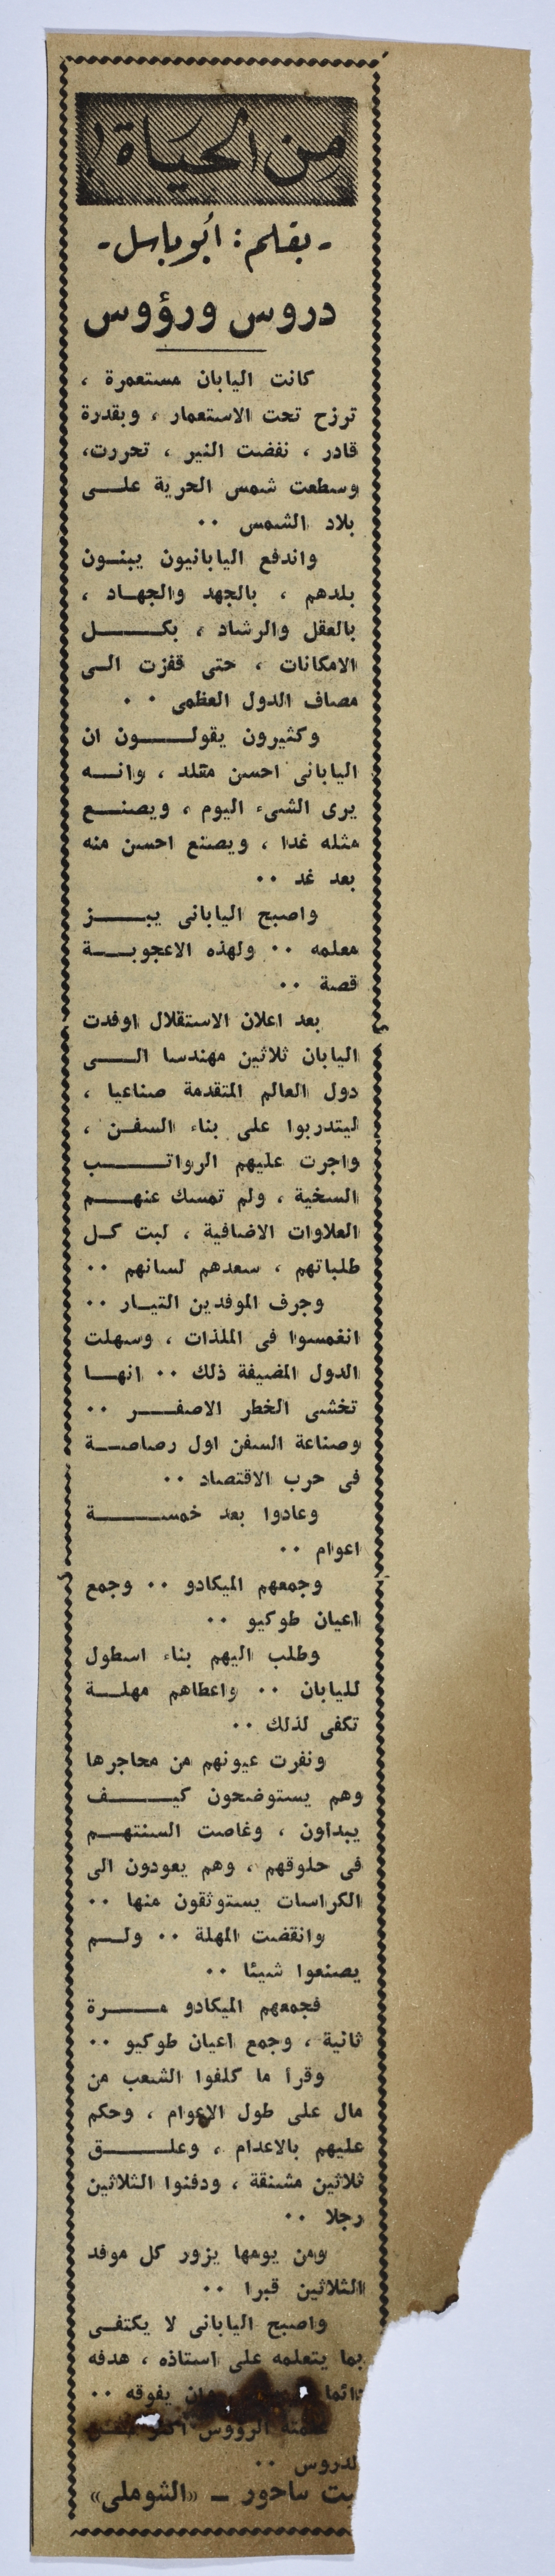 من الحياة !
- بقلم : أبو باسل -
دروس ورؤوس
كانت اليابان مستعمرة ،
ترزح تحت الاستعمار ، وبقدرة
قادر ، نفضت النير ، تحررت،
وسطعت شمس الحرية على
بلاد الشمس ٠٠
واندفع اليابانيون يبنون
بلدهم ، بالجهد والجهاد ،
بالعقل والرشاد ، بكل
الامكانات ، حتى قفزت الى
مصاف الدول العظمى ٠٠
وكثيرون يقولون ان
اليابانى احسن مقلد ، وانه
يرى الشىء اليوم ، ويصنع
مثله غدا ، ويصنع احسن منه
بعد غد ٠٠
واصبح اليابانى يبز
معلمه ٠٠ ولهذه الاعجوبة
قصة ٠٠
بعد اعلان الاستقلال اوفدت
اليابان ثلاثين مهندسا الى
دول العالم المتقدمة صناعيا ،
ليتدربوا على بناء السفن ،
واجرت عليهم الرواتب
السخية ، ولم تمسك عنهم
العلاوات الاضافية ، لبت كل
طلباتهم ، سعدهم لسانهم ٠٠
وجرف الموفدين التيار ٠٠
انغمسوا فى الملذات ، وسهلت
الدول المضيفة ذلك ٠٠ انها
تخشى الخطر الاصفر ٠٠
وصناعة السفن اول رصاصة
فى حرب الاقتصاد ٠٠
وعادوا بعد خمسة
اعوام ٠٠
وجمعهم الميكادو ٠٠ وجمع
اعيان طوكيو ٠٠
وطلب اليهم بناء اسطول
لليابان ٠٠ واعطاهم مهلة
تكفى لذلك ٠٠
ونفرت عيونهم من محاجرها
وهم يستوضحون كيف
يبداون ، وغاصت السنتهم
فى حلوقهم ، وهم يعودون الى
الكراسات يستوثقون منها ٠٠
وانقضت المهلة ٠٠ ولم
يصنعوا شيئا ٠٠
فجمعهم الميكادو مرة
ثانية ، وجمع اعيان طوكيو ٠٠
وقرا ما كلفوا الشعب من
مال على طول الاعوام ، وحكم
عليهم بالاعدام ، وعلق
ثلاثين مشنقة ، ودفنوا الثلاثين
رجلا ٠٠
ومن يومها يزور كل موفد
الثلاثين قبرا ٠٠
واصبح اليابانى لا يكتفى
بما يتعلمه على استاذه ، هدفه
دائما يفوقه ٠٠
الرؤوس
الدروس ٠٠
بيت ساحور - «الشوملى»